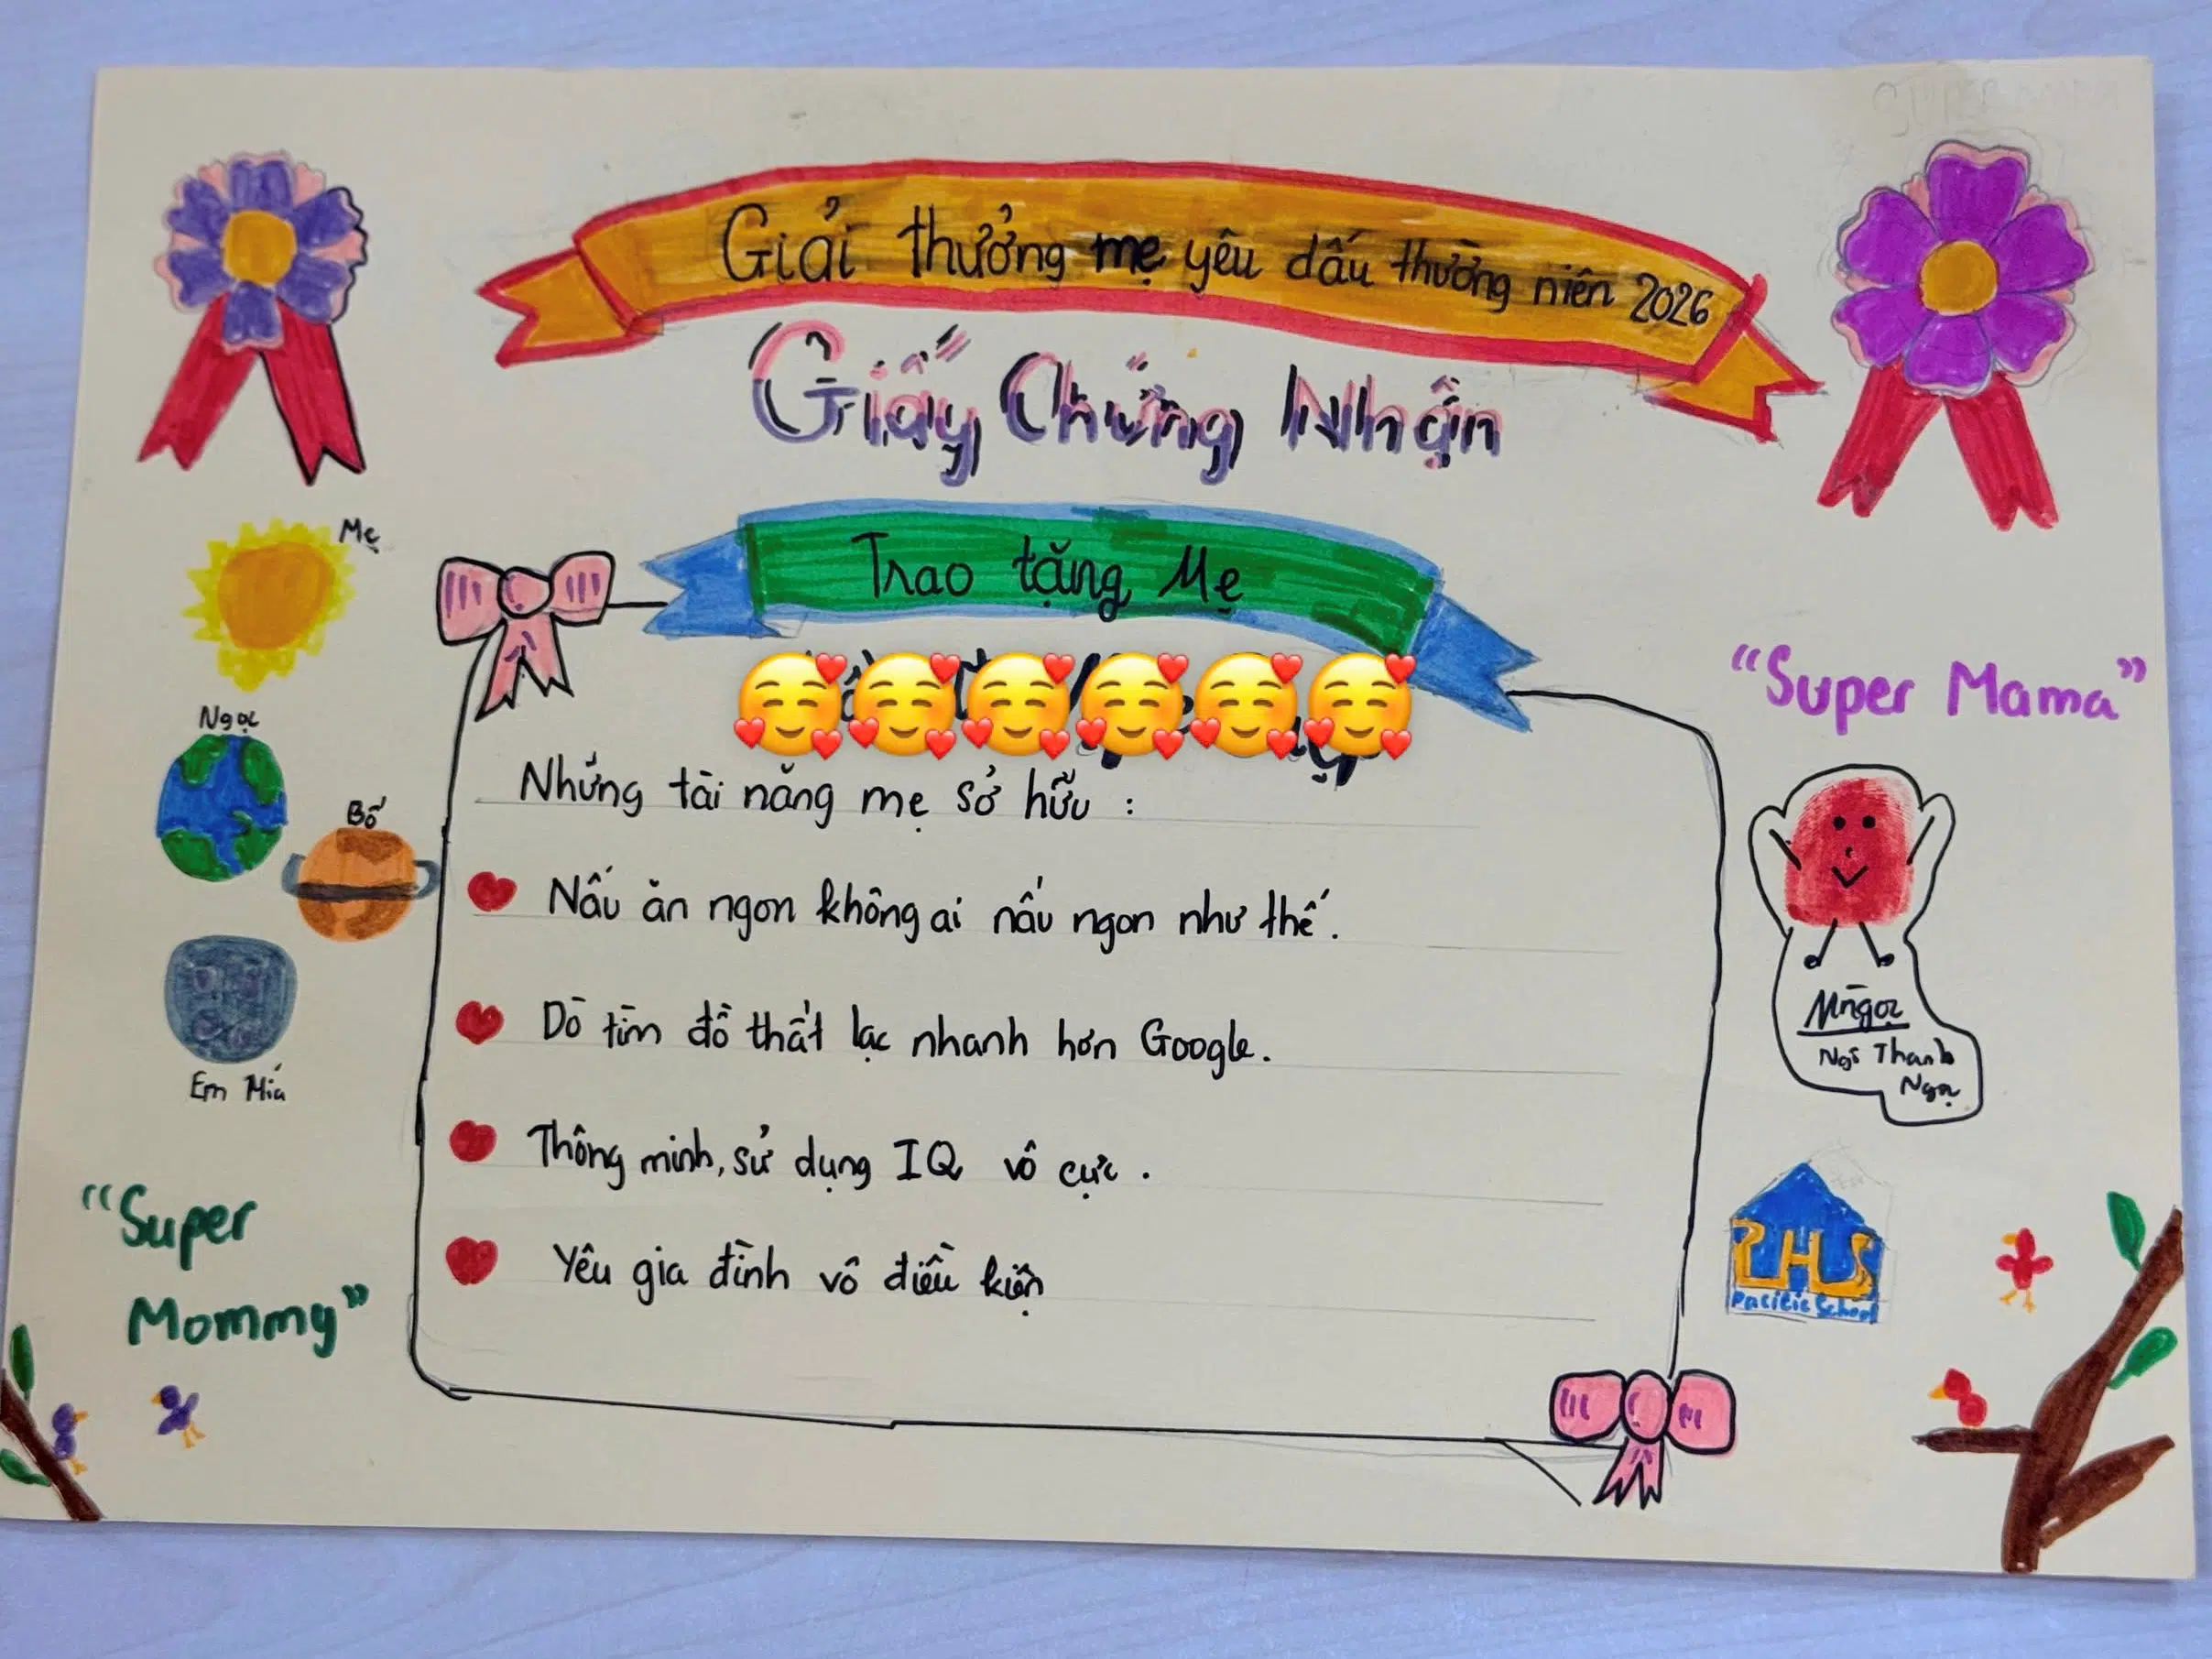 Giải thưởng mẹ yêu dấu thường niên 2026
Giấy Chứng Nhận
Trao tặng Mẹ
Những tài năng mẹ sở hữu :
Nấu ăn ngon không ai nấu ngon như thế.
Dò tìm đồ thất lạc nhanh hơn Google.
Thông minh, sử dụng IQ vô cực.
Yêu gia đình vô điều kiện
Mẹ
Ngọc
Bố
Em Mía
"Super
Mommy"
"Super Mama"
Mngọc
Ngô Thanh
Ngọc
PHS
Pacific School